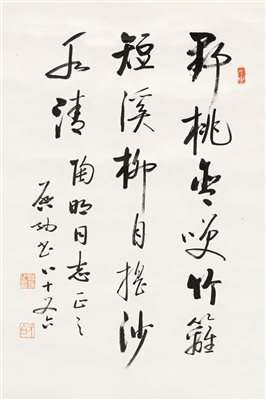 野桃含咲竹籬
短溪柳自搖沙
水清 陶明同志正之
启功书 八十又六